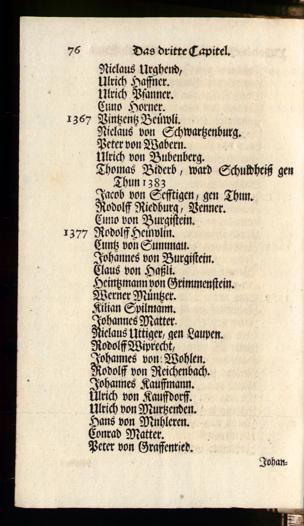 76 Das dritte Capitel.
Niclaus Urghend,
Ulrich Haffner.
Ulrich Pfanner.
Cuno Horner.
1367 Vintzentz Beüwli.
Niclaus von Schwartzenburg.
Peter von Wabern.
Ulrich von Bubenberg.
Thomas Biderb, ward Schuldheiß gen
Thun 1383
Jacob von Sefftigen, gen Thun.
Rodolff Riedburg, Venner.
Cuno von Burgistein.
1377 Rodolff
Cuntz von Summau.
Johannes von Burgistein.
Claus von Haßli.
Heintzmann von Grimmenstein.
Werner Müntzer.
Kilian Spilmann.
Johannes Matter.
Niclaus Uttiger, gen Laupen.
Rodolff Wiprecht,
Johannes von Wohlen.
Rodolff von Reichenbach.
Johannes Kauffmann.
Ulrich von Kauffdorff.
Ulrich von Murtzenden.
Hans von Muhleren.
Conrad Matter.
Peter von Graffenried.
Johan-